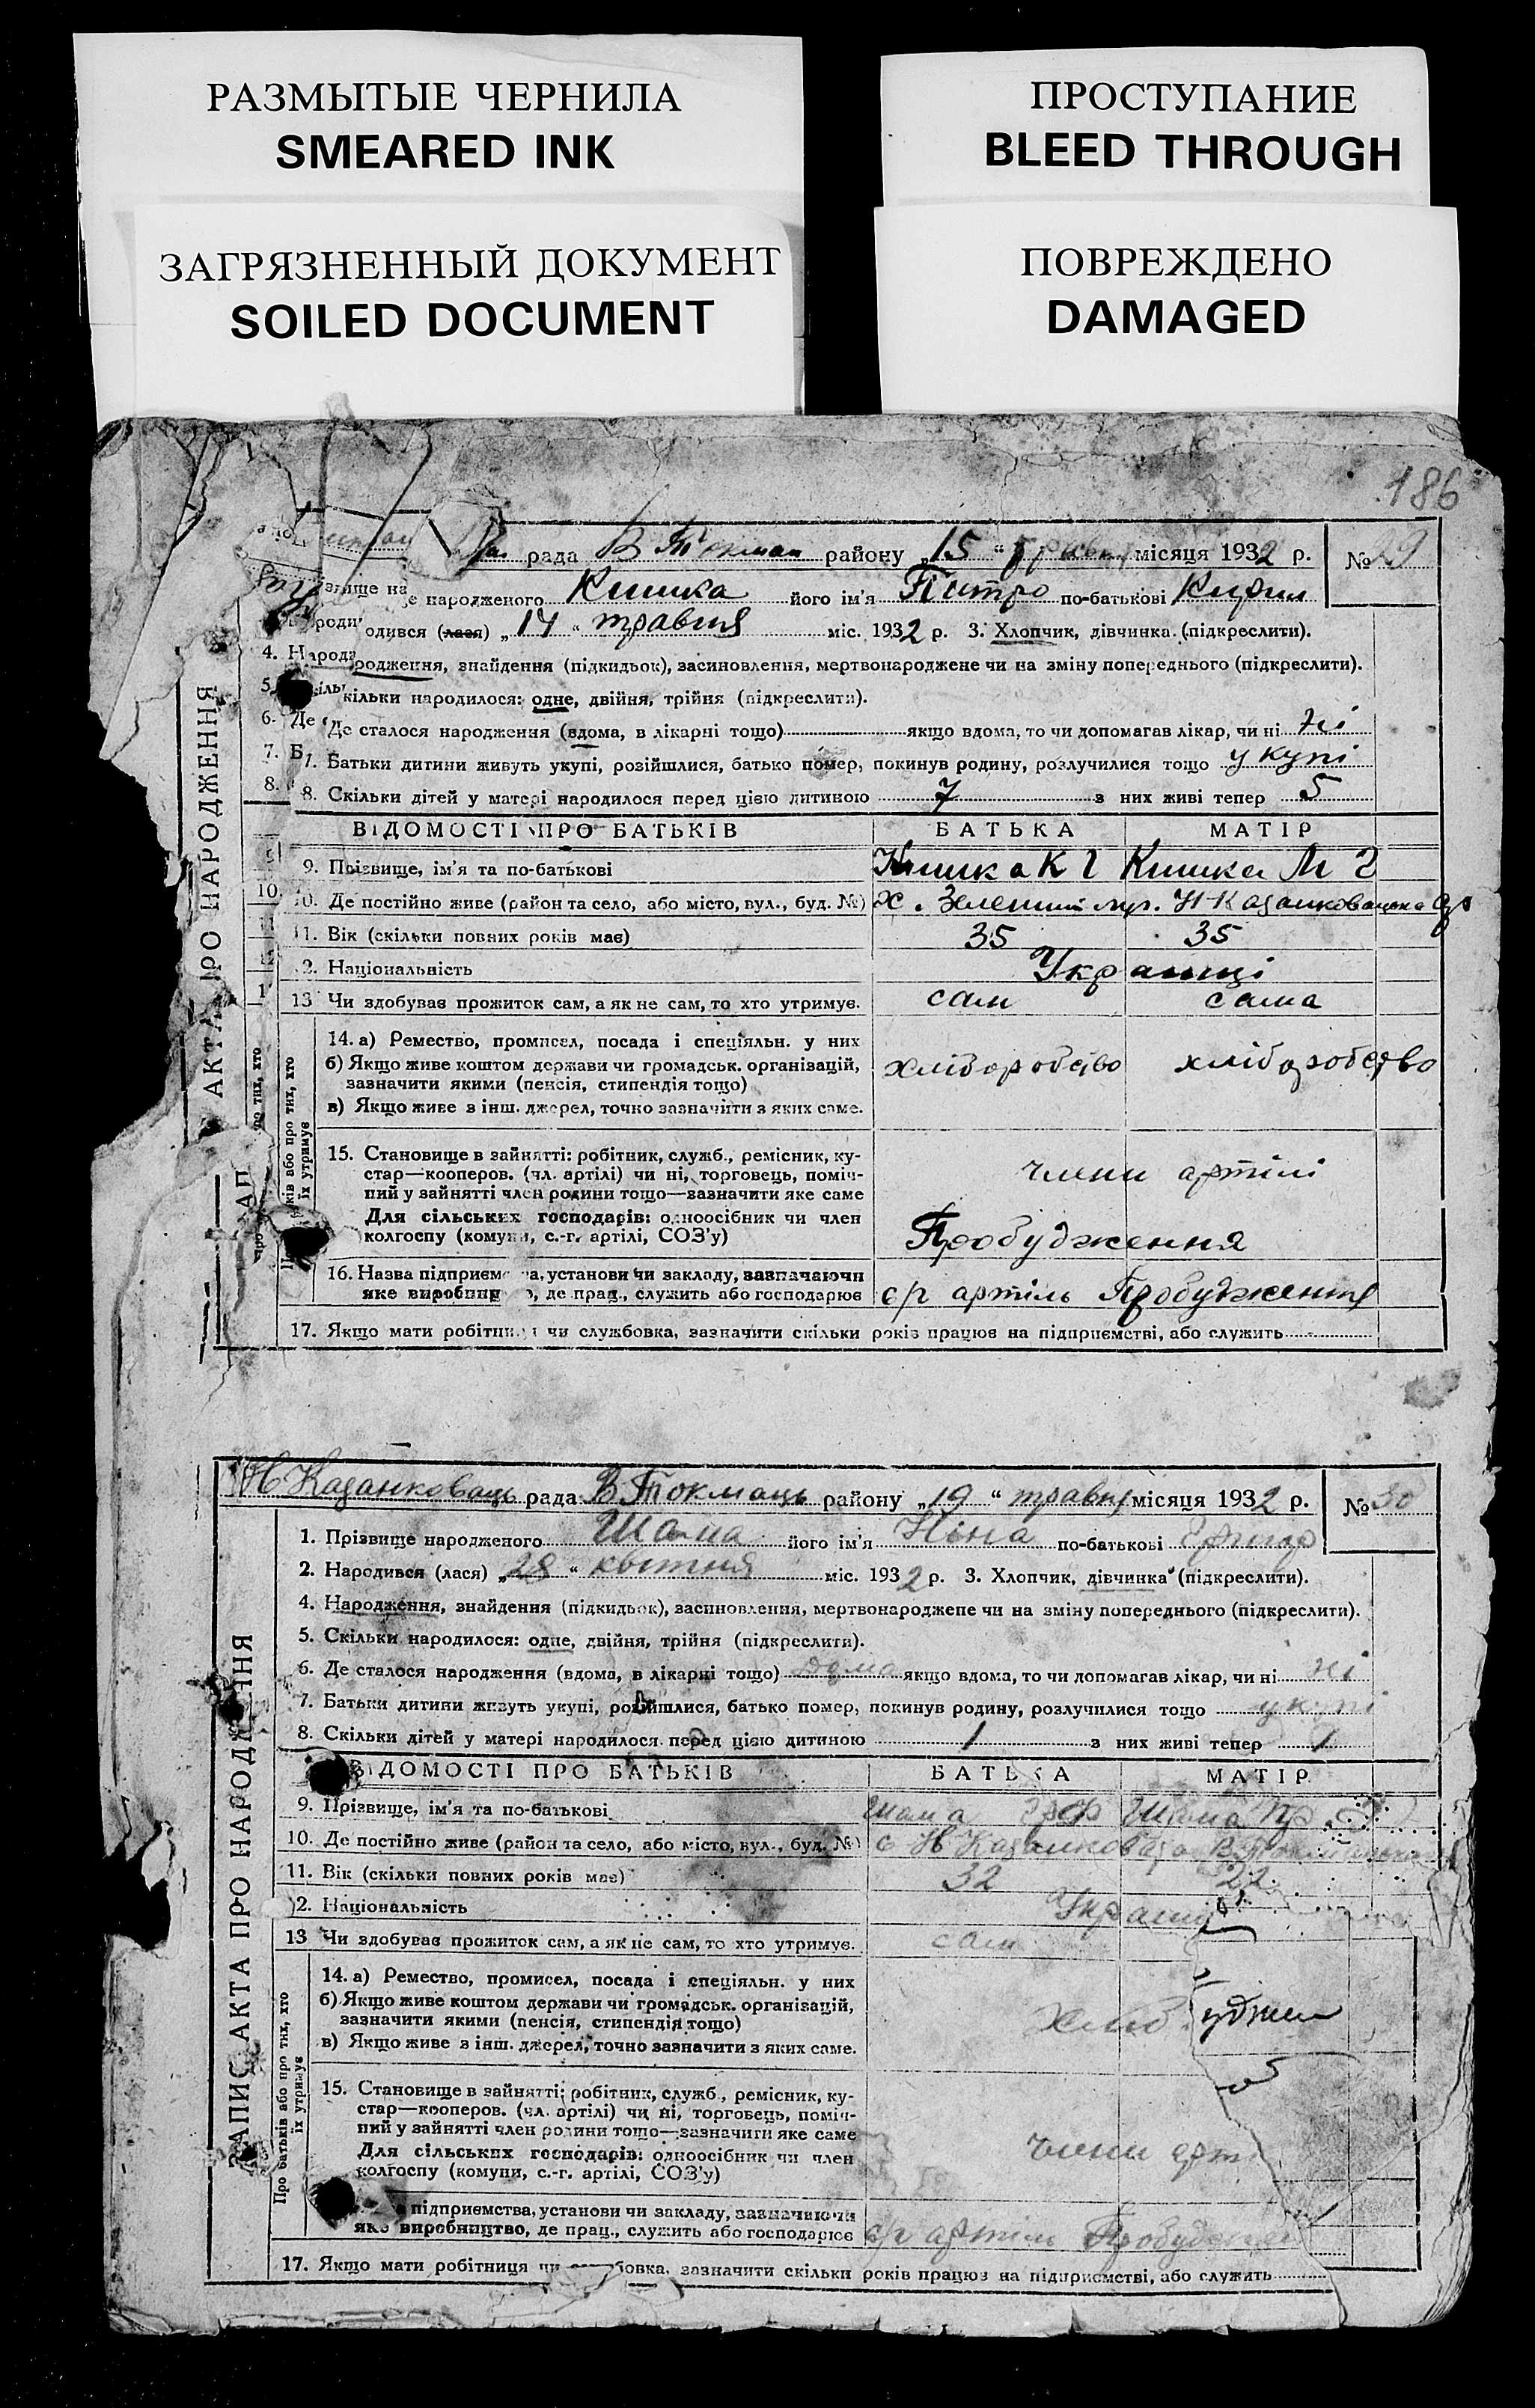 РАЗМЫТЫЕ ЧЕРНИЛА
SMEARED INK
ПРОСТУПАНИЕ
BLEED THROUGH
ЗАГРЯЗНЕННЫЙ ДОКУМЕНТ
SOILED DOCUMENT
ПОВРЕЖДЕНО
DAMAGED
186
рада В Токмац району „15“ травня місяця 1932 р. №29
народженого Кишка його ім'я Питро по-батькові Кирил
одився (лася) „14“ травня міс. 1932 р. 3. Хлопчик, дівчинка. (підкреслити).
4. Народження, знайдення (підкидьок), засиновлення, мертвонароджене чи на зміну попереднього (підкреслити).
5. кільки народилося: одне, двійня, трійня (підкреслити).
6. Де сталося народження (вдома, в лікарні тощо) якщо вдома, то чи допомагав лікар, чи ні ні
7. Батьки дитини живуть укупі, розійшлися, батько помер, покинув родину, розлучилися тощо укупі
8. Скільки дітей у матері народилося перед цією дитиною 7 з них живі тепер 5
ВІДОМОСТІ ПРО БАТЬКІВ БАТЬКА МАТІР
9. Прізвище, ім'я та по-батькові Кишка К Г Кишка М Г
10. Де постійно живе (район та село, або місто, вул., буд. №) Х. Зелений
11. Вік (скільки повних років має) 35 35
12. Національність Українці
13 Чи здобував прожиток сам, а як не сам, то хто утримує. сам сама
14. а) Ремество, промисел, посада і спеціяльн. у них
б) Якщо живе коштом держави чи громадськ. організацій, хліборобство хліборобство
зазначити якими (пенсія, стипендія тощо)
в) Якщо живе з інш. джерел, точно зазначити з яких саме.
15. Становище в зайнятті: робітник, служб., ремісник, ку-
стар—кооперов. (чл. артілі) чи ні, торговець, поміч- члени артілі
ний у зайнятті член родини тощо—зазначити яке саме
Для сільських господарів: одноосібник чи член
колгоспу (комуни, с.-г. артілі, СОЗ'у) Пробудження
16. Назва підприємства, установи чи закладу, зазначаючи
яке виробниц , де прац., служить або господарює с/г артіль Пробудження
17. Якщо мати робітниця чи службовка, зазначити скільки років працює на підприємстві, або служить
АКТА ПРО НАРОДЖЕННЯ
Н Казанковац рада В Токмаць району „19“ травня місяця 1932 р. №30
1. Прізвище народженого Шама його ім'я Ніна по-батькові Григор
2. Народився (лася) „28“ квітня міс. 1932 р. 3. Хлопчик, дівчинка (підкреслити).
4. Народження, знайдення (підкидьок), засиновлення, мертвонароджене чи на зміну попереднього (підкреслити).
5. Скільки народилося: одне, двійня, трійня (підкреслити).
6. Де сталося народження (вдома, в лікарні тощо) дома якщо вдома, то чи допомагав лікар, чи ні ні
7. Батьки дитини живуть укупі, розійшлися, батько помер, покинув родину, розлучилися тощо укупі
8. Скільки дітей у матері народилося перед цією дитиною 1 з них живі тепер 1
ВІДОМОСТІ ПРО БАТЬКІВ БАТЬКА МАТІР
9. Прізвище, ім'я та по-батькові Шама Шама
10. Де постійно живе (район та село, або місто, вул., буд. №) с Н Казанковац
11. Вік (скільки повних років має) 32 22
12. Національність Українці
13 Чи здобував прожиток сам, а як не сам, то хто утримує. сам
14. а) Ремество, промисел, посада і спеціяльн. у них
б) Якщо живе коштом держави чи громадськ. організацій, хліб
зазначити якими (пенсія, стипендія тощо)
в) Якщо живе з інш. джерел, точно зазначити з яких саме.
15. Становище в зайнятті: робітник, служб., ремісник, ку-
стар—кооперов. (чл. артілі) чи ні, торговець, поміч-
ний у зайнятті член родини тощо—зазначити яке саме
Для сільських господарів: одноосібник чи член члени арт
колгоспу (комуни, с.-г. артілі, СОЗ'у)
підприємства, установи чи закладу, зазначаючи
яке виробництво, де прац., служить або господарює с/г артіль Пробуджен
17. Якщо мати робітниця чи службовка, зазначити скільки років працює на підприємстві, або служить
ЗАПИС АКТА ПРО НАРОДЖЕННЯ
Про батьків або про тих, хто
їх утримує